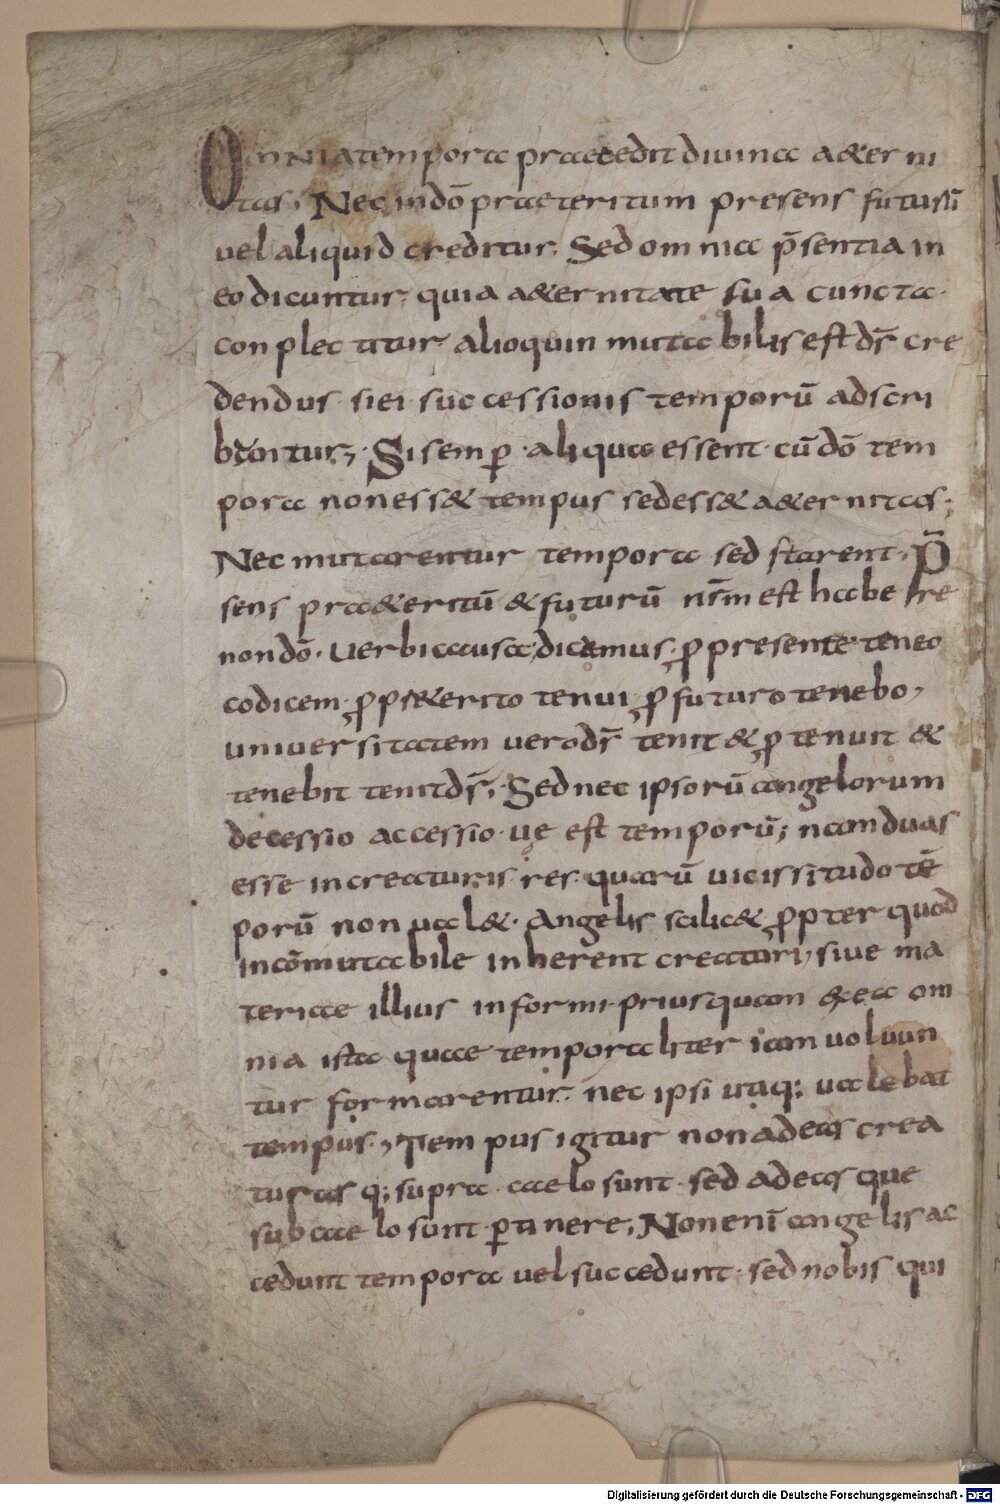 Omnia tempora praecedit divina aeterni
tas. Nec in dō praeteritum presens futurū
vel aliquid creditur. Sed omnia p̄sentia in
eo dicuntur quia aeternitate sua cuncta.
conplectitur alioquin mutabilis est dš̄ cre
dendus si ei successionis temporū adscri
buntur; Si semp̱ aliqua essent cū dō tem
pora non ess& tempus sed ess& a&ernitas;
Nec mutarentur tempora sed starent. P̄
sens pra&eritū & futurū nr̄m est habere
non dō. Uerbi causa dicemus ꝓ presente teneo
codicem ꝓ pr&erito tenui ꝓ futuro tenebo,
universitatem vero dš̄ tenit & ꝓ tenuit &
tenebit tenit dš̄. Sed nec ipsorū angelorum
decessio accessio ve est temporū; nam duas
esse in creaturis res quarū vicissitudo tē
porū non val&. Angelis scilic& ꝓpter quod
incōmutabile inherent creatori, sive ma
teriae illius informi priusquam ex ea om
nia ista quae temporaliter iam uoluun
tur formarentur. nec ipsi itaq; valebat
tempus. Tempus igitur non ad eas crea
turas q; supra caelo sunt. sed ad eas que
sub caelo sunt ꝑtinere. Non enī angelis ac
cedunt tempora vel succedunt. sed nobis qui
Digitalisierung gefördert durch die Deutsche Forschungsgemeinschaft - DFG